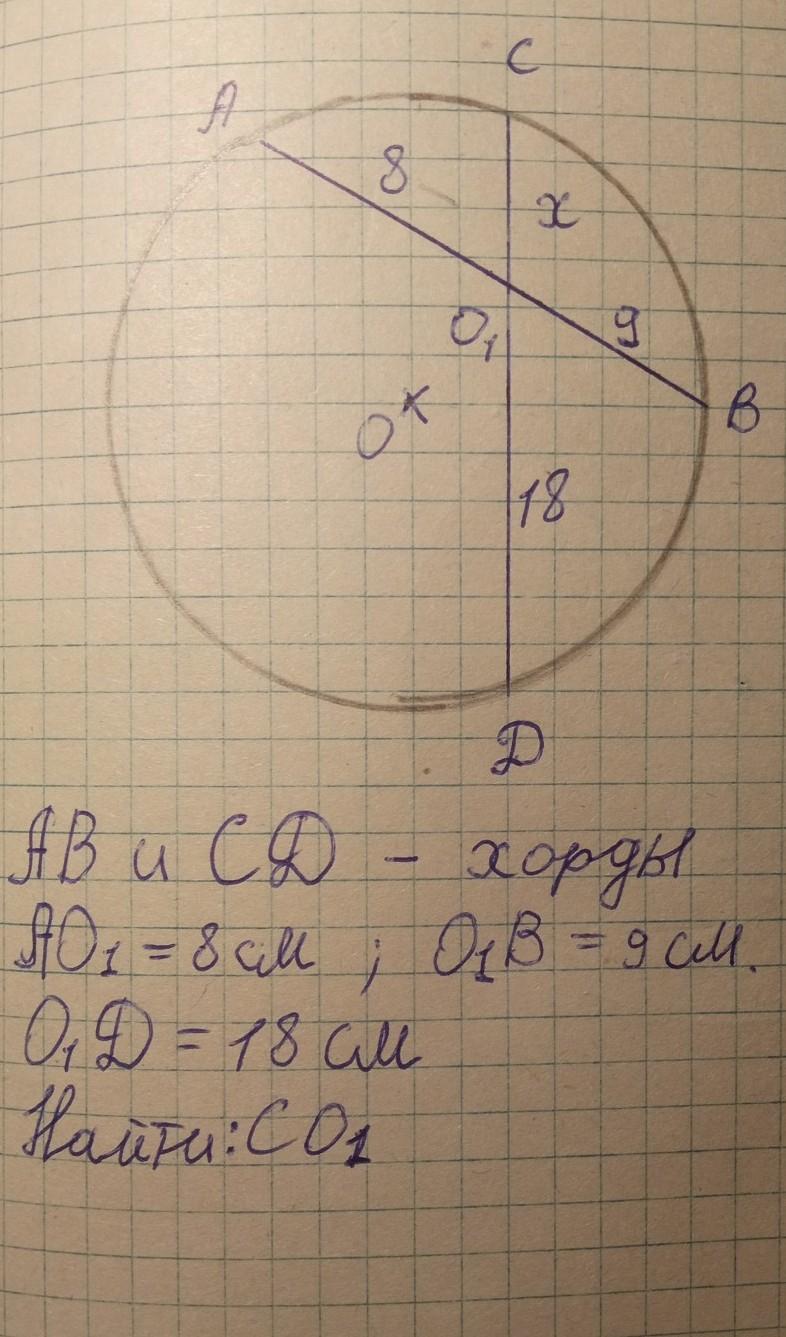 C
A
8
x
O₁
9
B
O
18
Д
AB и CД - хорды
AO₁ = 8 см ; O₁B = 9 см.
O₁Д = 18 см
Найти: CO₁